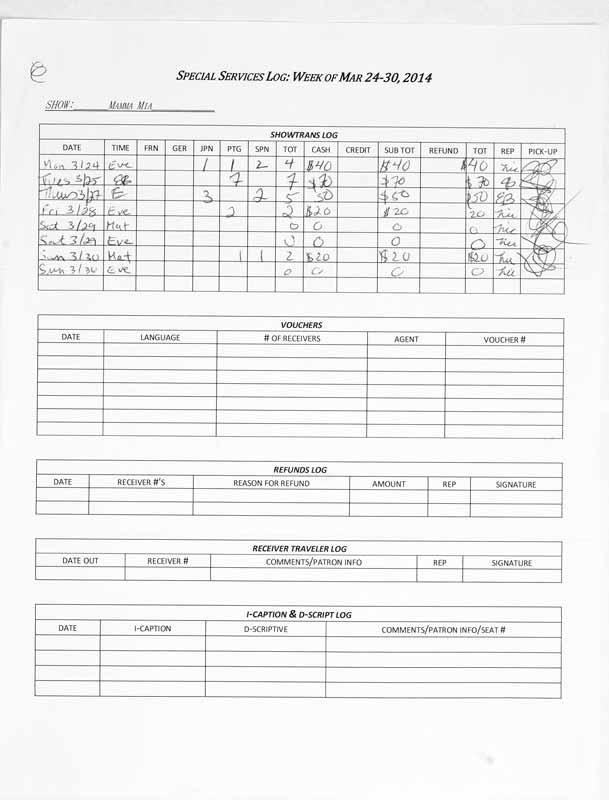 SPECIAL SERVICES LOG: WEEK OF MAR 24-30, 2014
SHOW: MAMMA MIA
SHOWTRANS LOG
DATE TIME FRN GER JPN PTG SPN TOT CASH CREDIT SUB TOT REFUND TOT REP PICK-UP
Mon 3/24 Eve 1 1 2 4 $40 $40 $40
Tues 3/25 7 7 $70 $70 $70
Thurs 3/27 E 3 2 5 50 $50 $50 EB
Fri 3/28 Eve 2 2 $20 $20 20
Sat 3/29 Mat 0 0 0 0
Sat 3/29 Eve 0 0 0 0
Sun 3/30 Mat 1 1 2 $20 $20 $20
Sun 3/30 Eve 0 0 0 0
VOUCHERS
DATE LANGUAGE # OF RECEIVERS AGENT VOUCHER #
REFUNDS LOG
DATE RECEIVER #'S REASON FOR REFUND AMOUNT REP SIGNATURE
RECEIVER TRAVELER LOG
DATE OUT RECEIVER # COMMENTS/PATRON INFO REP SIGNATURE
I-CAPTION & D-SCRIPT LOG
DATE I-CAPTION D-SCRIPTIVE COMMENTS/PATRON INFO/SEAT #